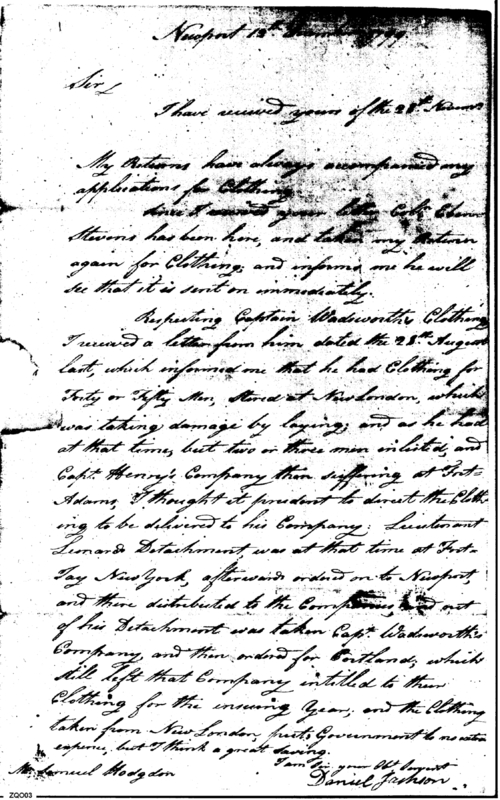 Newport 12th December 1799.
Sir,
I have received yours of the 28th Novemr
My Returns have always accompanied my
applications for Clothing.
Since I received your letter Coln Ebenr
Stevens has been here, and taken my Return
again for Clothing, and informs me he will
see that it is sent on immediately.
Respecting Captain Wadsworth's Clothing
I received a letter from him dated the 28th August
last, which informed me that he had Clothing for
Forty or Fifty Men, stored at New London, which
was taking damage by laying; and as he had
at that time, but two or three men inlisted, and
Capt. Henry's Company then suffering at Fort-
Adams, I thought it prudent to direct the Cloth-
ing to be delivered to his Company: Lieutenant
Leonards Detachment, was at that time at Fort-
Jay New York, afterwards ordered on to Newport,
and there distributed to the Companies, and out
of his Detachment was taken Capt. Wadsworth's
Company and then ordered for Portland; which
still left that Company intitled to their
Clothing for the insuing Year; and the Clothing
taken from New London, puts Government to no extra
expence, but I think a great saving.
I am Sir your Obt Servant
Mr Samuel Hodgdon
Daniel Jackson
ZQO03